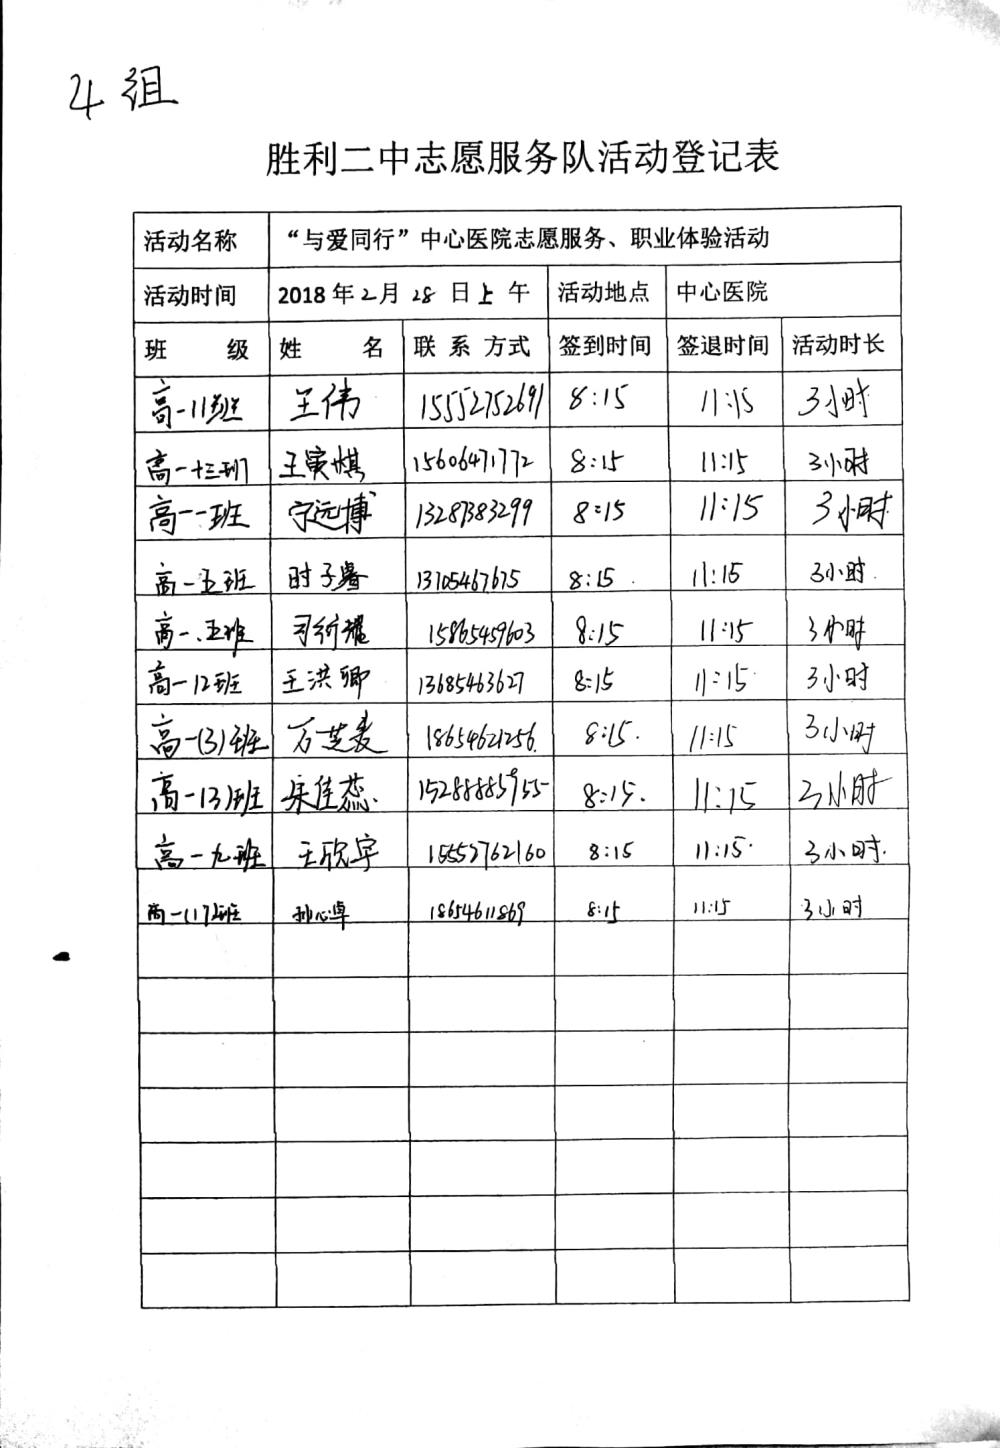 4组
胜利二中志愿服务队活动登记表
活动名称 “与爱同行”中心医院志愿服务、职业体验活动
活动时间 2018年2月28日上午 活动地点 中心医院
班 级 姓 名 联系方式 签到时间 签退时间 活动时长
高一11班 王伟 15552752691 8:15 11:15 3小时
高一十三班 王寅棋 15606471772 8:15 11:15 3小时
高一一班 宁远博 13287383299 8:15 11:15 3小时
高一五班 时子睿 13705467675 8:15 11:15 3小时
高一.五班 司衍耀 15865459603 8:15 11:15 3小时
高一12班 王洪卿 13685463627 8:15 11:15 3小时
高一(3)班 万芝麦 18654621256. 8:15. 11:15 3小时
高一(3)班 佳蕊. 8:15. 11:15 3小时
高一九班 王欣宇 15552762160 8:15 11:15. 3小时.
高一(17)班 孙心卓 18654611869 8:15 11:15 3小时